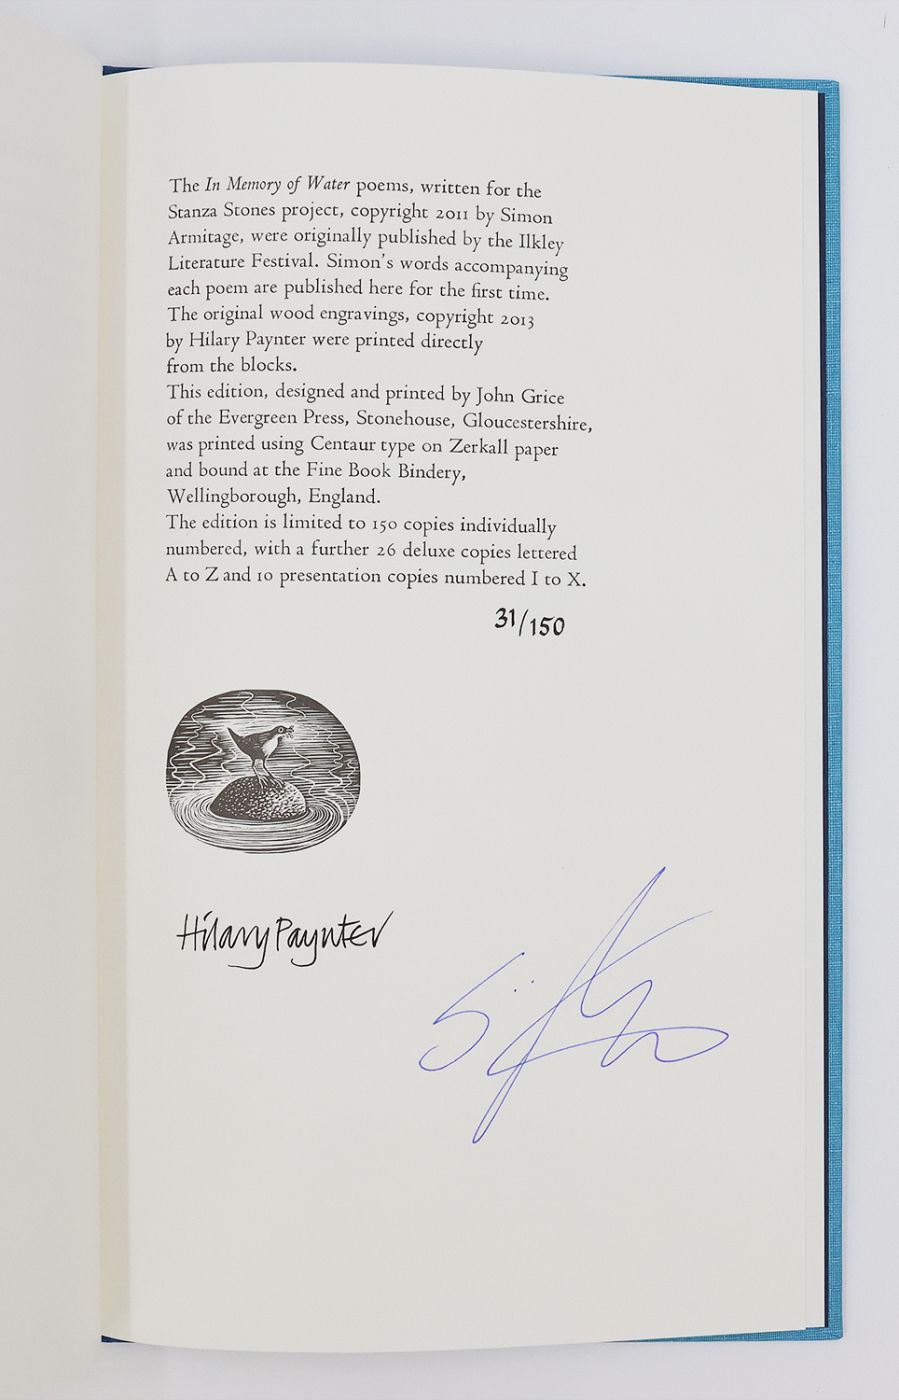 The In Memory of Water poems, written for the
Stanza Stones project, copyright 2011 by Simon
Armitage, were originally published by the Ilkley
Literature Festival. Simon's words accompanying
each poem are published here for the first time.
The original wood engravings, copyright 2013
by Hilary Paynter were printed directly
from the blocks.
This edition, designed and printed by John Grice
of the Evergreen Press, Stonehouse, Gloucestershire,
was printed using Centaur type on Zerkall paper
and bound at the Fine Book Bindery,
Wellingborough, England.
The edition is limited to 150 copies individually
numbered, with a further 26 deluxe copies lettered
A to Z and 10 presentation copies numbered I to X.
31/150
Hilary Paynter